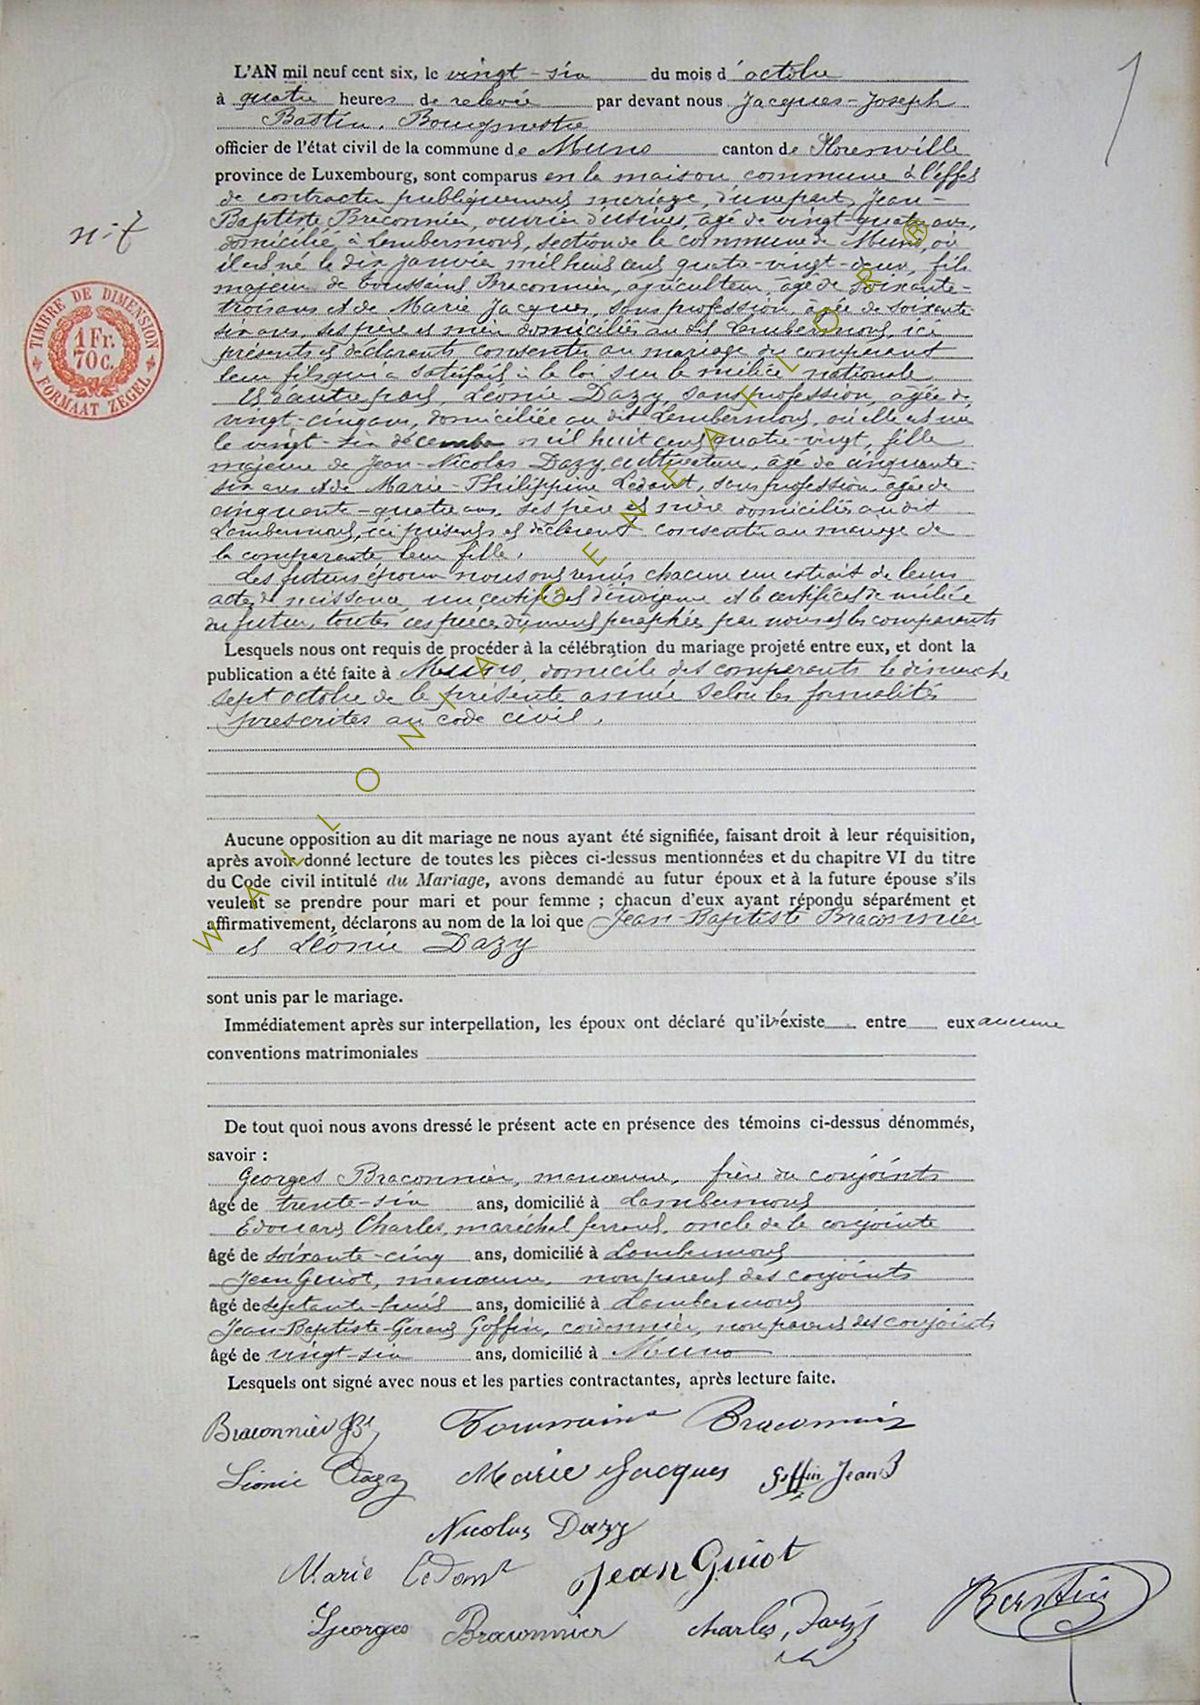 L'AN mil neuf cent six, le vingt-six du mois d'octobre
à quatre heures de relevée par devant nous Jacques-Joseph
Bastin, Bourgmestre
officier de l'état civil de la commune de Muno canton de Florenville
province de Luxembourg, sont comparus en la maison commune à l'effet
de contracter publiquement mariage, d'une part, Jean-
Baptiste Braconnier, ouvrier d'usines, âgé de vingt-quatre ans,
domicilié, à Lambermont, section de la commune de Muno, où
il est né le dix janvier mil huit cent quatre-vingt-deux, fils
majeur de Toussaint Braconnier, agriculteur, âgé de soixante-
trois ans et de Marie Jacques, sans profession, âgée de soixante
six ans, ses père et mère domiciliés au dit Lambermont, ici
présents et déclarants consentir au mariage du comparant
leur fils qui a satisfait à la loi sur la milice nationale
Et d'autre part, Léonie Dazy, sans profession, âgée de
vingt-cinq ans, domiciliée au dit Lambermont, où elle est née
le vingt-six décembre mil huit cent quatre-vingt, fille
majeure de Jean-Nicolas Dazy cultivateur, âgé de cinquante-
six ans et de Marie-Philippine Ledant, sans profession, âgée de
cinquante-quatre ans, ses père et mère domiciliés au dit
Lambermont, ici présents et déclarent consentir au mariage de
la comparante leur fille.
Les futurs époux nous ont remis chacun un extrait de leurs
actes de naissance, un certificat d' et le certificat de milice
du futur, toutes ces pièces dûment paraphées par nous et les comparants
Lesquels nous ont requis de procéder à la célébration du mariage projeté entre eux, et dont la
publication a été faite à Muno, domicile des comparants le dimanche
sept octobre de la présente année selon les formalités
prescrites au code civil.
n: 7
TIMBRE DE DIMENSION
1 Fr.
70 c.
FORMAAT ZEGEL
Aucune opposition au dit mariage ne nous ayant été signifiée, faisant droit à leur réquisition,
après avoir donné lecture de toutes les pièces ci-dessus mentionnées et du chapitre VI du titre
du Code civil intitulé du Mariage, avons demandé au futur époux et à la future épouse s'ils
veulent se prendre pour mari et pour femme ; chacun d'eux ayant répondu séparément et
affirmativement, déclarons au nom de la loi que Jean-Baptiste Braconnier
et Léonie Dazy
sont unis par le mariage.
Immédiatement après sur interpellation, les époux ont déclaré qu'il existe entre eux aucune
conventions matrimoniales
De tout quoi nous avons dressé le présent acte en présence des témoins ci-dessus dénommés,
savoir :
Georges Braconnier, manœuvre, frère du conjoint
âgé de trente-six ans, domicilié à Lambermont
Edouard Charles, maréchal ferrant, oncle de la conjointe
âgé de soixante-cinq ans, domicilié à Lambermont
Jean Guiot, manœuvre, non parent des conjoints
âgé de septante-huit ans, domicilié à Lambermont
Jean-Baptiste-Gérard Goffin, cordonnier, non parent des conjoints
âgé de vingt-six ans, domicilié à Muno
Lesquels ont signé avec nous et les parties contractantes, après lecture faite.
Braconnier JBt Toussaint Braconnier
Léonie Dazy Marie Jacques Goffin Jean B
Nicolas Dazy
Marie Ledant Jean Guiot
Georges Braconnier Charles,
Bastin
WALLONIA-GENEALOOR ®